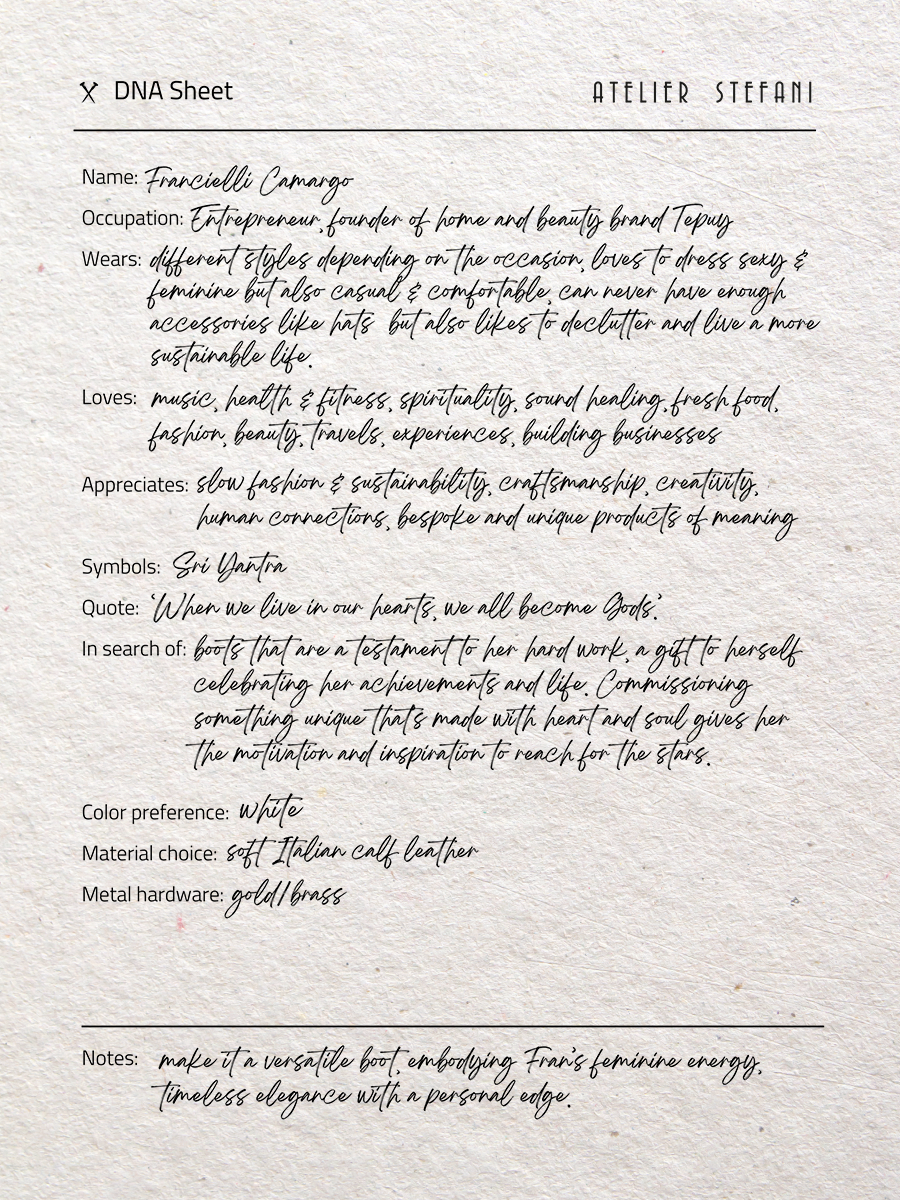 DNA Sheet ATELIER STEFANI
Name: Francielli Camargo
Occupation: Entrepreneur, founder of home and beauty brand Tepuy
Wears: different styles depending on the occasion, loves to dress sexy &
feminine but also casual & comfortable, can never have enough
accessories like hats but also likes to declutter and live a more
sustainable life.
Loves: music, health & fitness, spirituality, sound healing, fresh food,
fashion, beauty, travels, experiences, building businesses
Appreciates: slow fashion & sustainability, craftsmanship, creativity,
human connections, bespoke and unique products of meaning
Symbols: Sri Yantra
Quote: 'When we live in our hearts, we all become Gods'.
In search of: boots that are a testament to her hard work, a gift to herself
celebrating her achievements and life. Commissioning
something unique that's made with heart and soul gives her
the motivation and inspiration to reach for the stars.
Color preference: white
Material choice: soft Italian calf leather
Metal hardware: gold/brass
Notes: make it a versatile boot, embodying Fran's feminine energy,
timeless elegance with a personal edge.